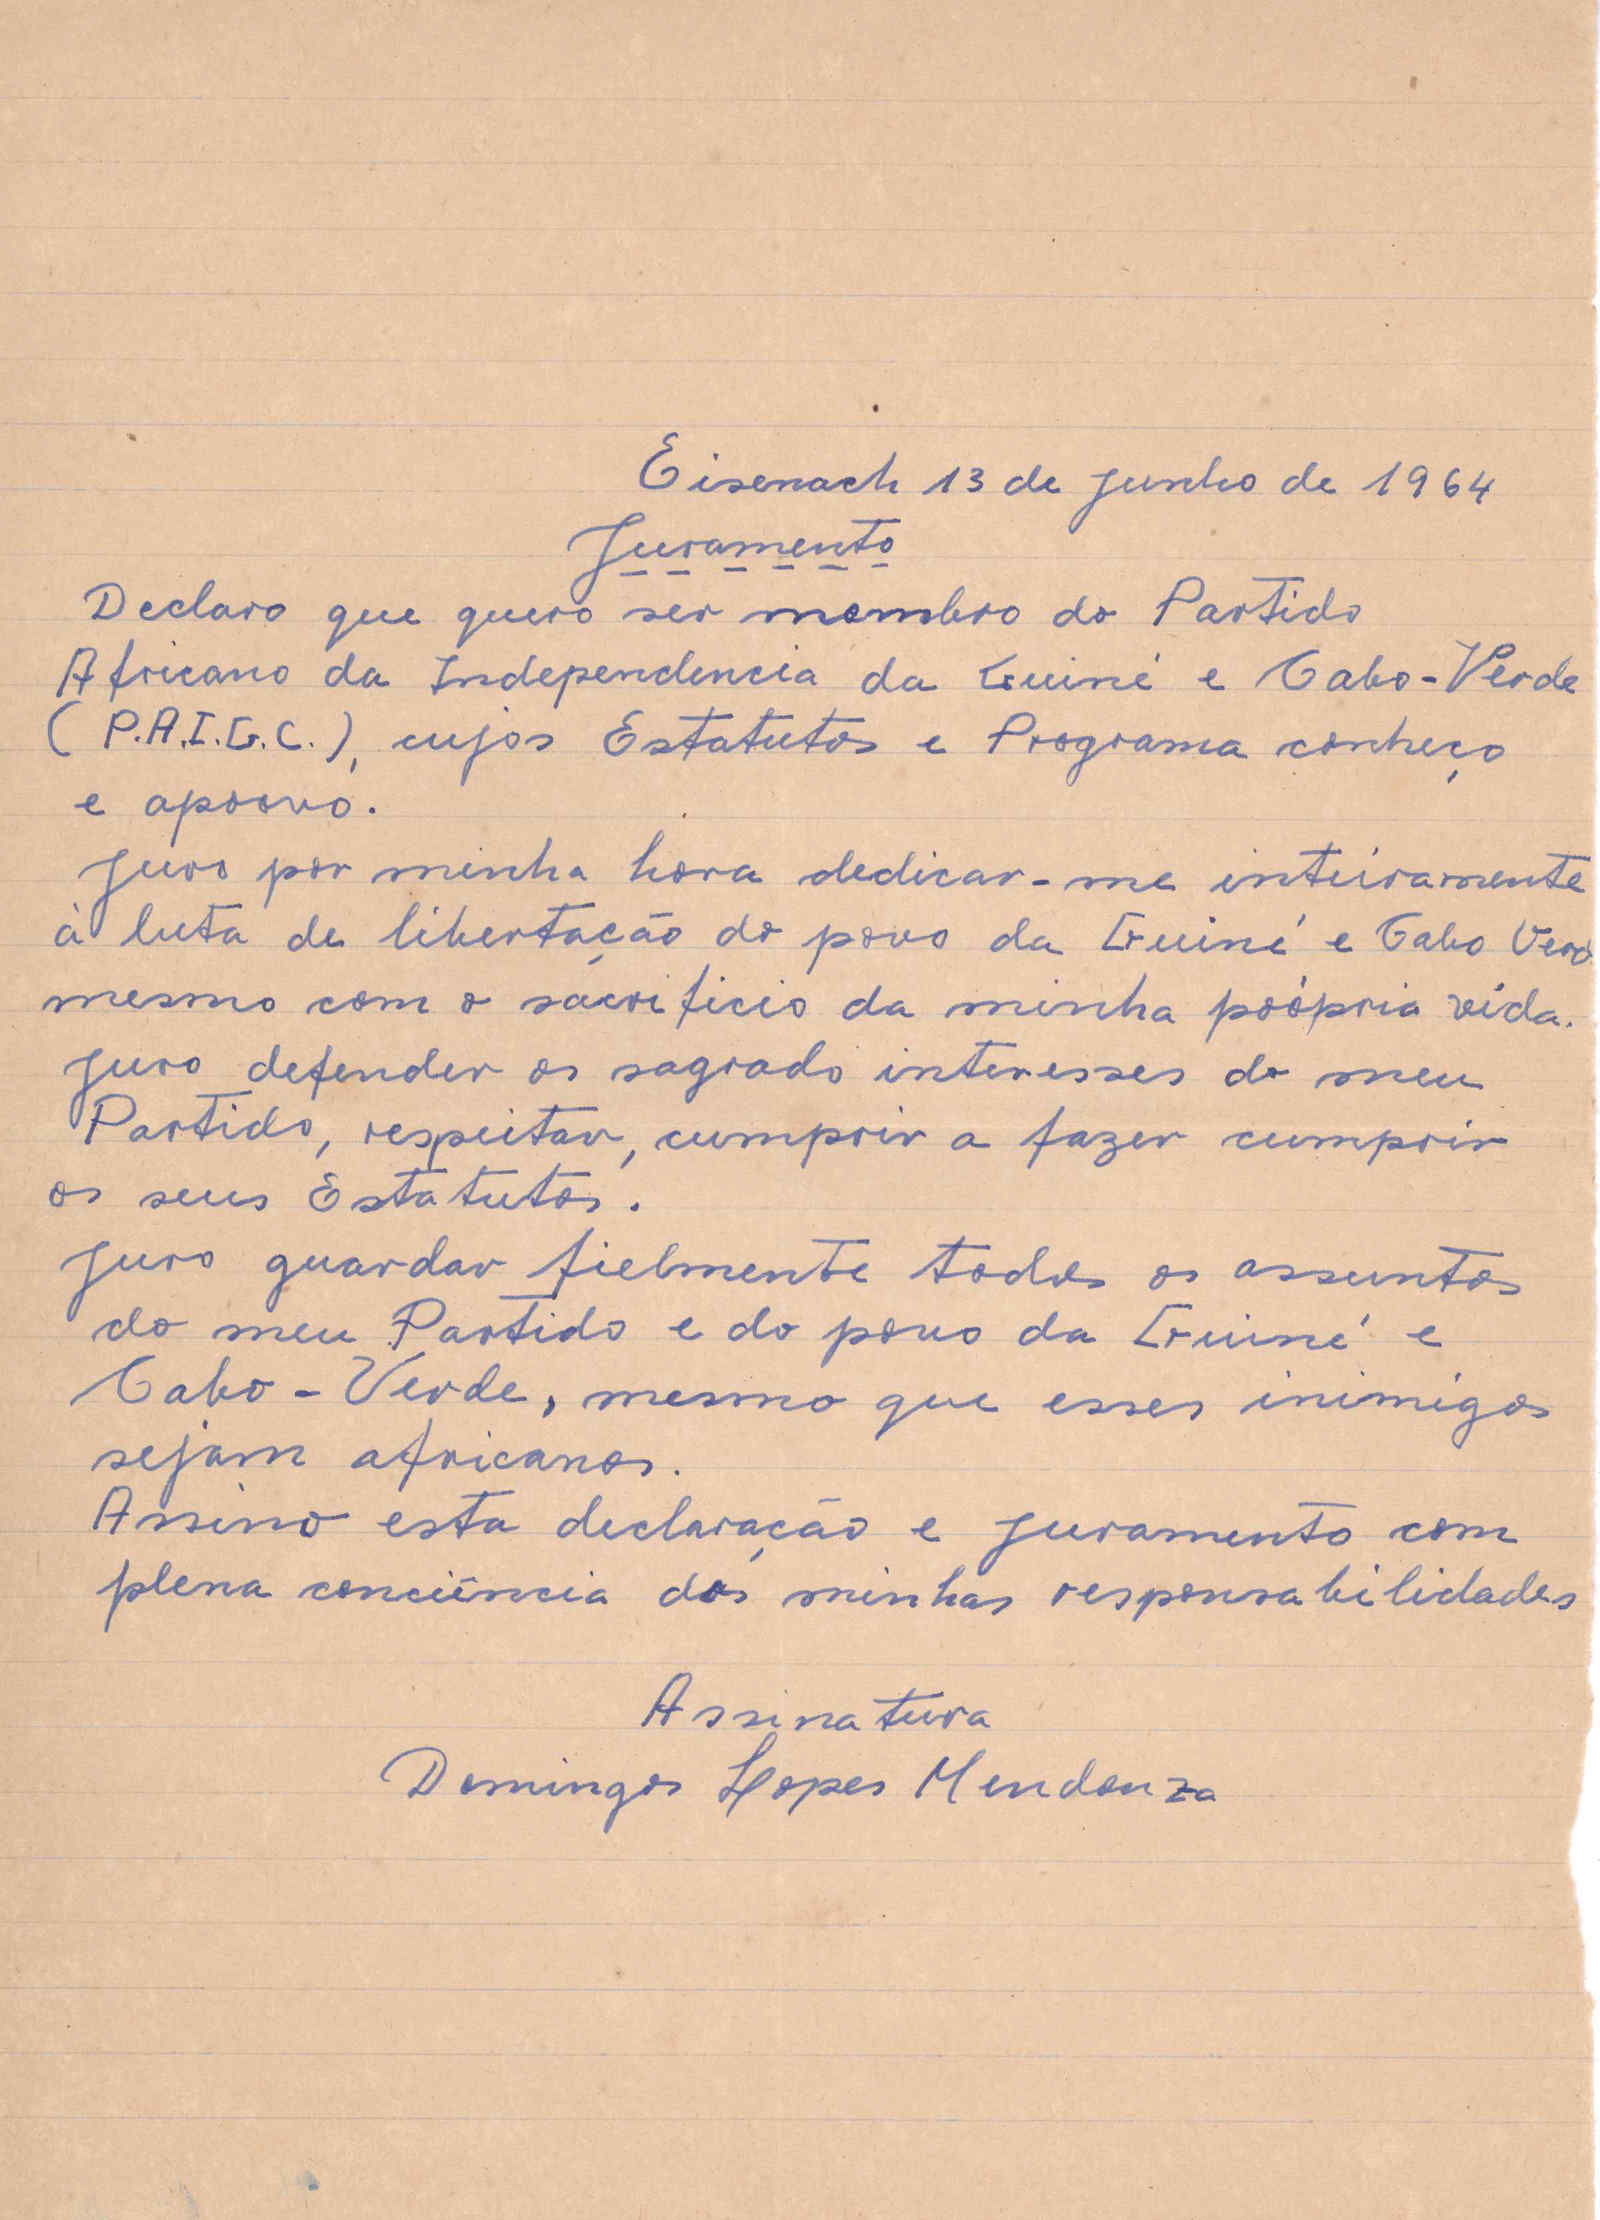 Eisenach 13 de Junho de 1964
Juramento
Declaro que quero ser membro do Partido
Africano da Independencia da Guiné e Cabo-Verde
(P.A.I.G.C.), cujos Estatutos e Programa conheço
e aprovo.
Juro por minha hora dedicar-me inteiramente
à luta de libertação do povo da Guiné e Cabo Verd
mesmo com o sacrificio da minha própria vida.
Juro defender os sagrado interesses do meu
Partido, respeitar, cumprir a fazer cumprir
os seus Estatutos.
Juro guardar fielmente todos os assuntos
do meu Partido e do povo da Guiné e
Cabo-Verde, mesmo que esses inimigos
sejam africanos.
Assino esta declaração e juramento com
plena conciência das minhas responsabilidades
Assinatura
Domingos Lopes Mendonza